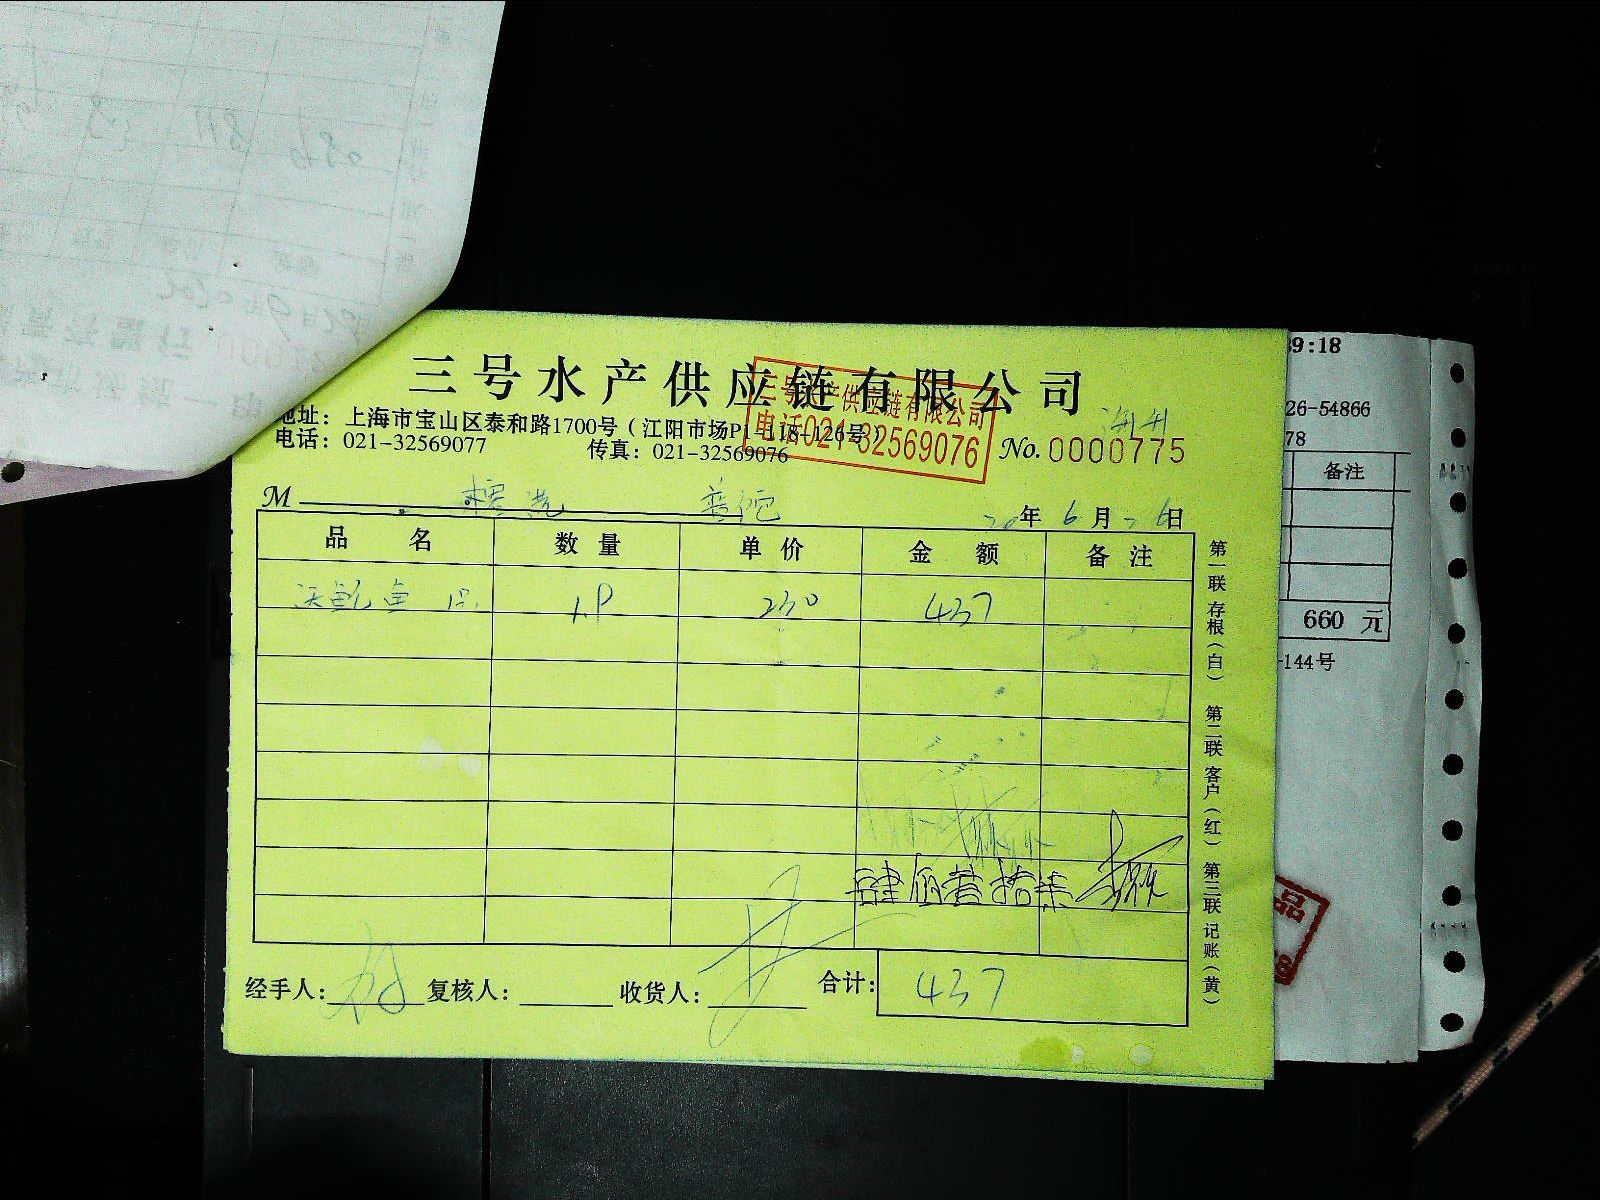 三号水产供应链有限公司
地址：上海市宝山区泰和路1700号（江阳市场P1-118-126号）
电话：021-32569077 传真：021-32569076
三号水产供应链有限公司
电话021-32569076
No.0000775
M 普陀 20年6月26日
品名 数量 单价 金额 备注
1.9 230 437
肆佰叁拾柒
经手人： 复核人： 收货人： 合计：437
第一联存根（白） 第二联客户（红） 第三联记账（黄）
39:18
26-54866
78
备注
660 元
-144号
品